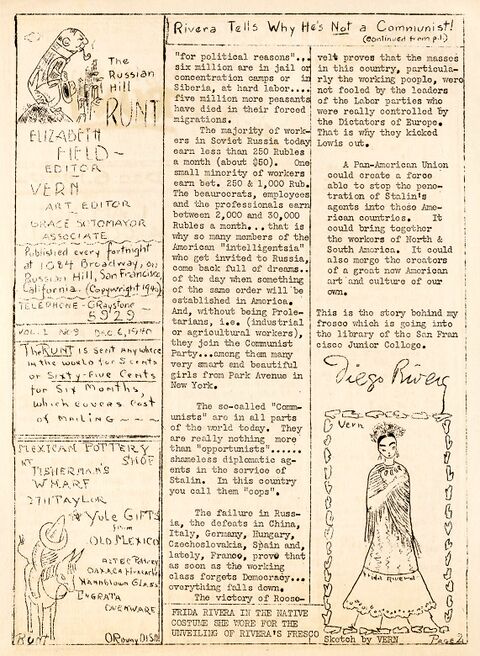 The
Russian
Hill
RUNT
ELIZABETH
FIELD-
EDITOR
VERN
ART EDITOR
GRACE SOTOMAYOR
ASSOCIATE
Published every fortnight
at 1084 Broadway, on
Russian Hill, San Francisco,
California. (Copyright 1940)
TELEPHONE - GRaystone
5929
VOL. 1 No 9 DEC 6, 1940
The RUNT is sent anywhere
in the world for 5 cents
or Sixty-Five Cents
for Six Months,
which covers cost
of mailing
MEXICAN POTTERY
SHOP
AT
FISHERMAN'S
WHARF
2711 TAYLOR
Yule Gifts
from
OLD MEXICO
Handblown Glass
OVENWARE
RUNT
Rivera Tells Why He's Not a Communist!
(continued from p.1)
"for political reasons"...
six million are in jail or
concentration camps or in
Siberia, at hard labor....
five million more peasants
have died in their forced
migrations.
The majority of work-
ers in Soviet Russia today
earn less than 250 Rubles
a month (about $50). One
small minority of workers
earn bet. 250 & 1,000 Rub.
The beaurocrats, employees
and the professionals earn
between 2,000 and 30,000
Rubles a month...that is
why so many members of the
American "intelligentsia"
who get invited to Russia,
come back full of dreams..
of the day when something
of the same order will be
established in America.
And, without being Prole-
tarians, i.e. (industrial
or agricultural workers),
they join the Communist
Party...among them many
very smart and beautiful
girls from Park Avenue in
New York.
The so-called "Comm-
unists" are in all parts
of the world today. They
are really nothing more
than "opportunists"......
shameless diplomatic ag-
ents in the service of
Stalin. In this country
you call them "cops".
The failure in Russ-
ia, the defeats in China,
Italy, Germany, Hungary,
Czechoslovakia, Spain and,
lately, France, prove that
as soon as the working
class forgets Democracy...
everything falls down.
The victory of Roose-
FRIDA RIVERA IN THE NATIVE
COSTUME SHE WORE FOR THE
UNVEILING OF RIVERA'S FRESCO
velt proves that the masses
in this country, particula-
rly the working people, were
not fooled by the leaders
of the Labor parties who
were really controlled by
the Dictators of Europe.
That is why they kicked
Lowis out.
A Pan-American Union
could create a force
able to stop the pene-
tration of Stalin's
agents into these Ame-
rican countries. It
could bring together
the workers of North &
South America. It could
also merge the creators
of a great new American
art and culture of our
own.
This is the story behind my
fresco which is going into
the library of the San Fran
cisco Junior College.
Diego Rivera
Vern
Frida Rivera
Sketch by VERN Page 2